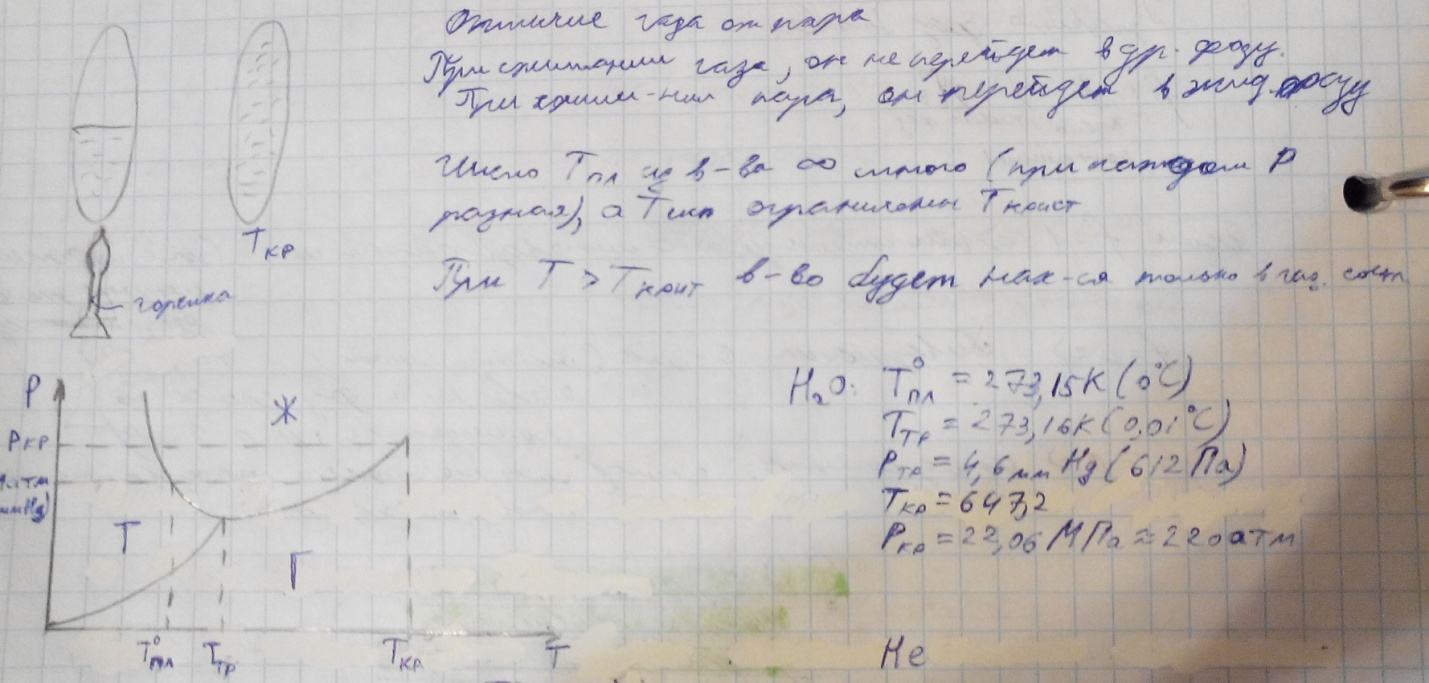 Отличие газа от пара
При сжатии газа, он не перейдет в др. фазу.
При пара, он перейдет в жид. фазу
Число Tпл в-ва ∞ много (при каждом P
разная), а Tкип ограничены Tкрист
При T > Tкрит в-во будет нах-ся только в газ. сост.
Tкр
горелка
P
Pкр
1 атм
мм Hg)
Ж
Т
Г
T°пл
Tтр
Tкр
T
H₂O: T°пл = 273,15K (0°C)
Tтр = 273,16K (0,01°C)
Pтр = 4,6 мм Hg (612 Па)
Tкр = 647,2
Pкр = 22,06 МПа ≈ 220 атм
He